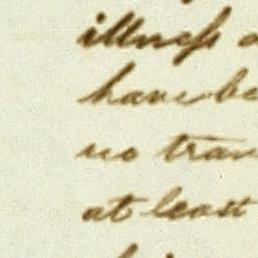 illness
have be
no tran
at least